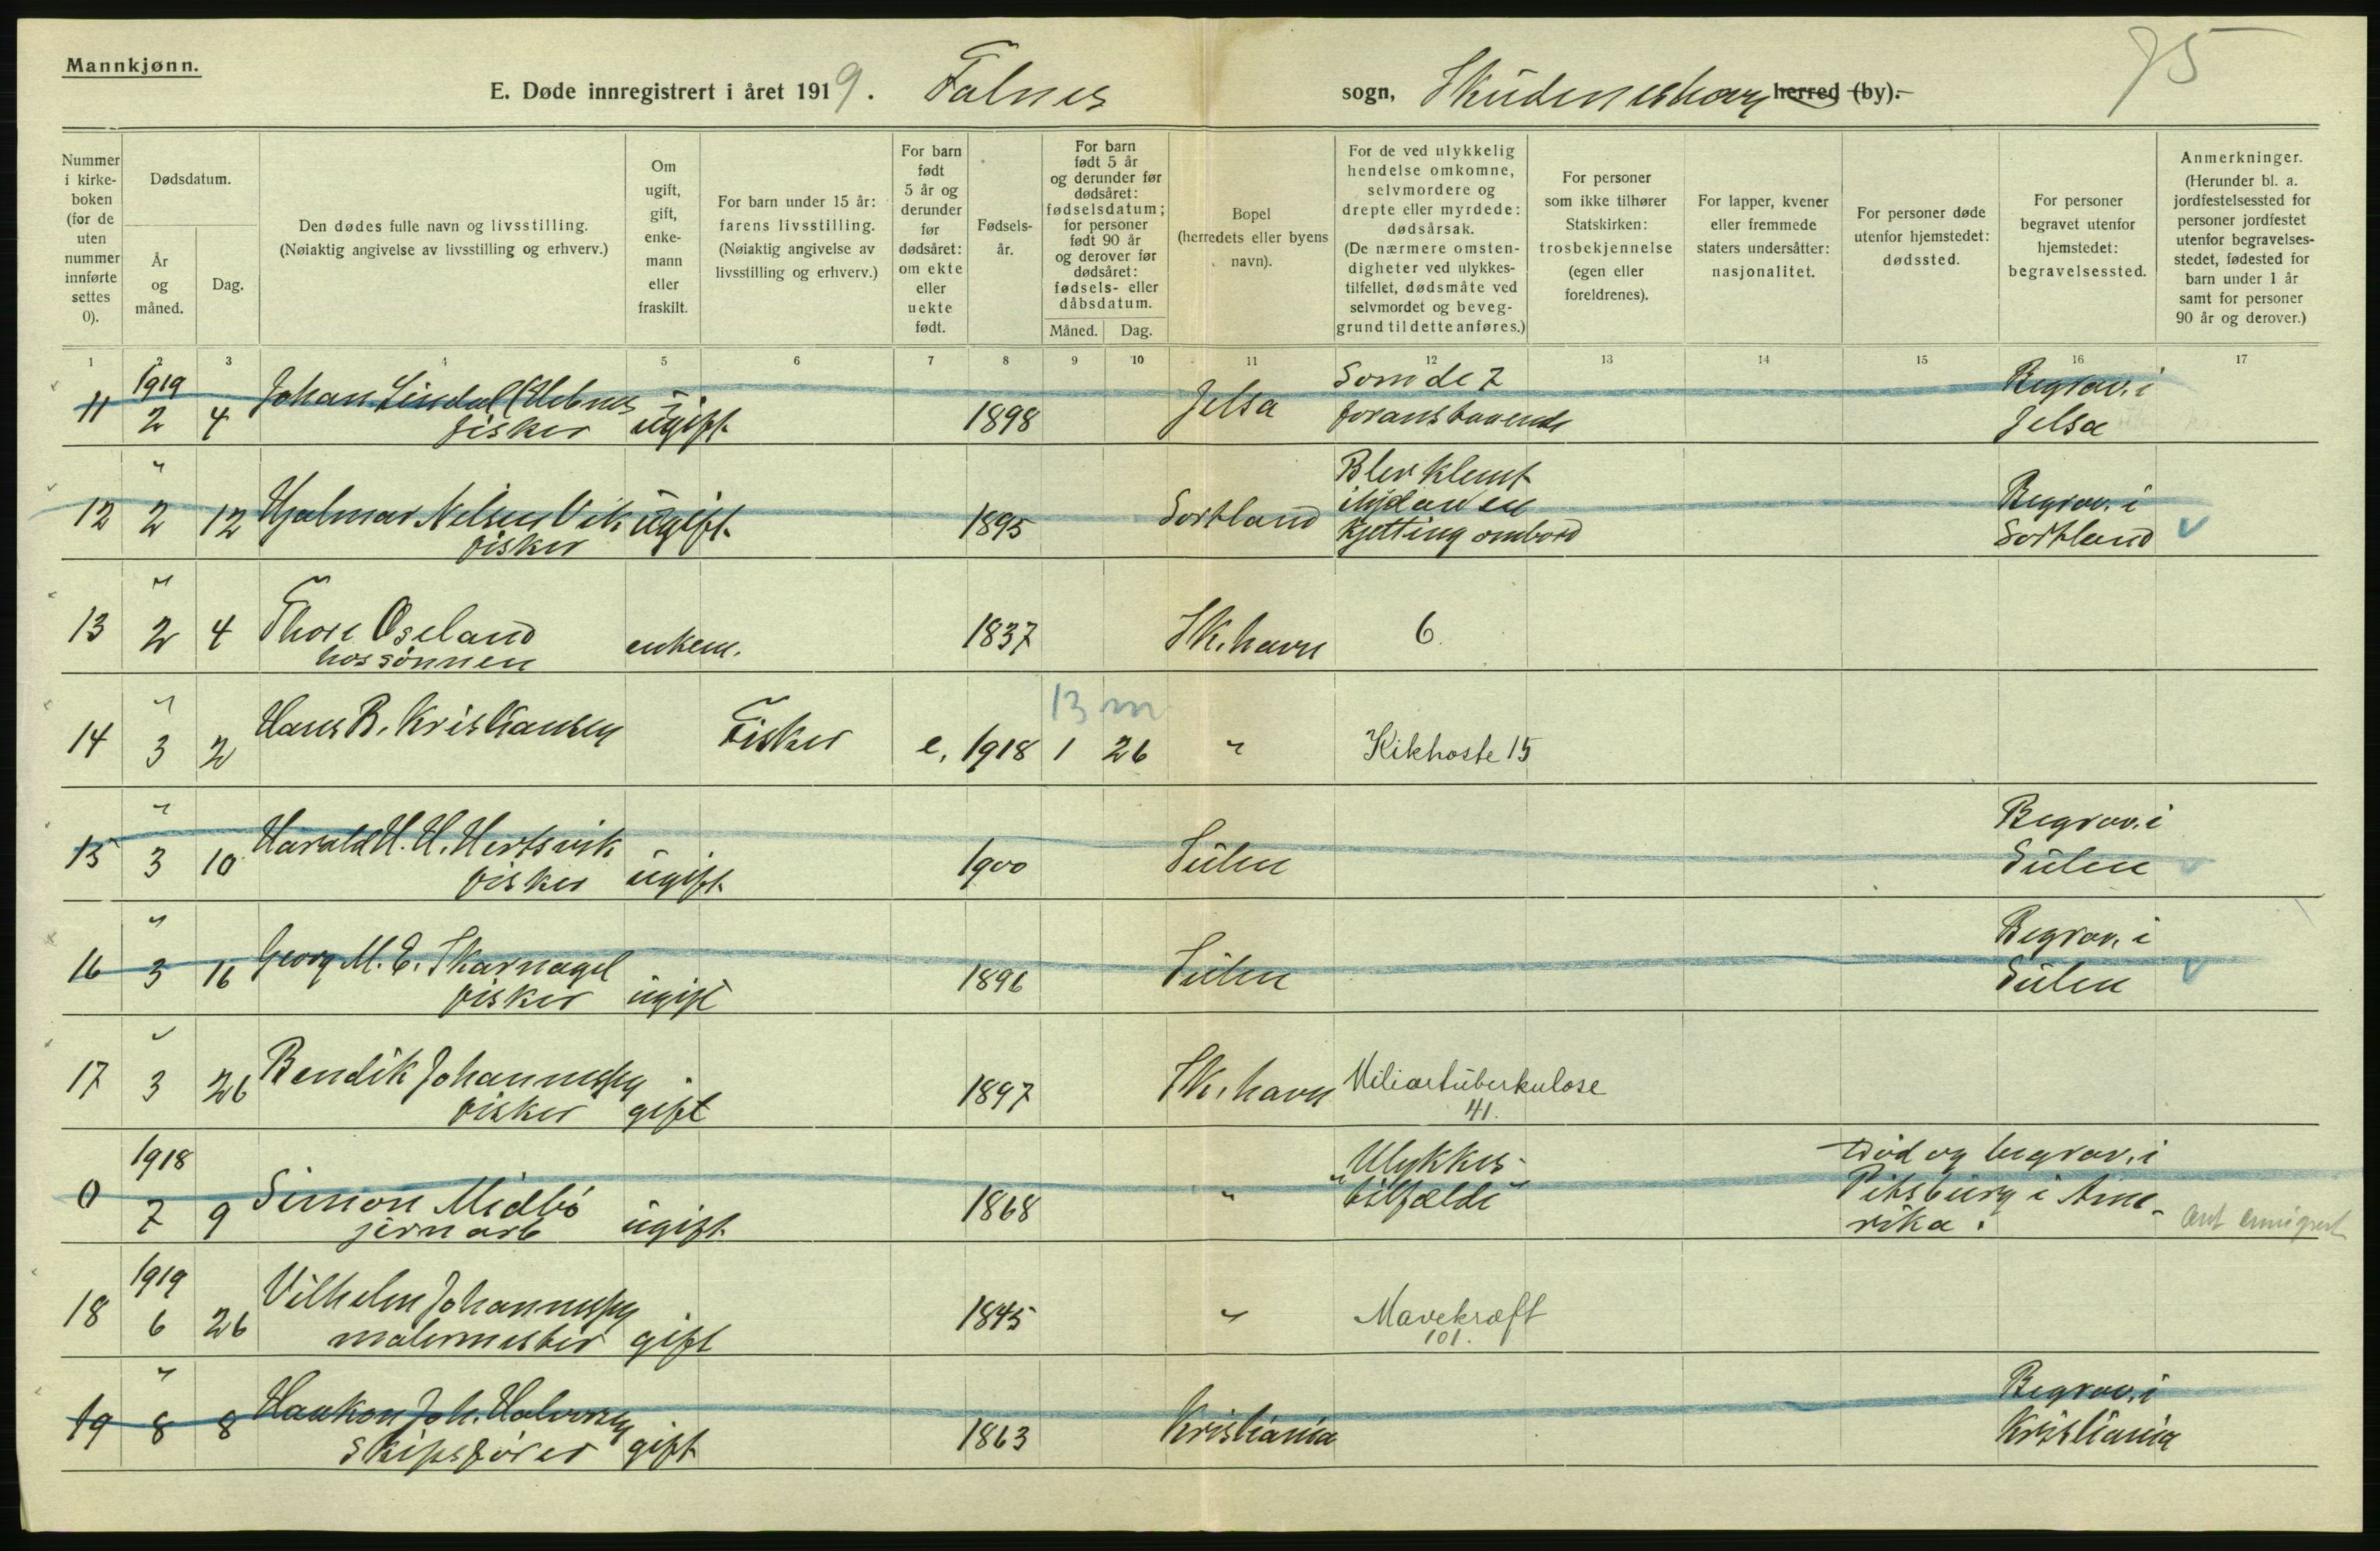 Mannkjønn.
75
E. Døde innregistrert i året 1919. Falnes sogn, Skudeneshavn herred (by).
Nummer i kirkeboken (for de uten nummer innførte settes 0).
Dødsdatum.
År og måned.
Dag.
Den dødes fulle navn og livsstilling.
(Nøiaktig angivelse av livsstilling og erhverv.)
Om ugift, gift, enkemann eller fraskilt.
For barn under 15 år: farens livsstilling.
(Nøiaktig angivelse av livsstilling og erhverv.)
For barn født 5 år og derunder før dødsåret: om ekte eller uekte født.
Fødselsår.
For barn født 5 år og derunder før dødsåret: fødselsdatum; for personer født 90 år og derover før dødsåret: fødsels- eller dåbsdatum.
Måned. Dag.
Bopel (herredets eller byens navn).
For de ved ulykkelig hendelse omkomne, selvmordere og drepte eller myrdede: dødsårsak.
(De nærmere omstendigheter ved ulykkestilfellet, dødsmåte ved selvmordet og beveggrund til dette anføres.)
For personer som ikke tilhører Statskirken: trosbekjennelse (egen eller foreldrenes).
For lapper, kvener eller fremmede staters undersåtter: nasjonalitet.
For personer døde utenfor hjemstedet: dødssted.
For personer begravet utenfor hjemstedet: begravelsessted.
Anmerkninger.
(Herunder bl. a. jordfestelsessted for personer jordfestet utenfor begravelsesstedet, fødested for barn under 1 år samt for personer 90 år og derover.)
1 2 3 4 5 6 7 8 9 10 11 12 13 14 15 16 17
1919 Som de 7 Begrav. i
11 2 4 Johan Lindal fisker ugift 1898 Jelsa foranstaaende Jelsa
" Blev klemt
12 2 12 Hjalmar Nelsen Vik ugift 1895 Sortland ihjel av en Begrav. i
fisker kjetting ombord Sortland
"
13 2 4 Thore Oseland enkem. 1837 Sk.havn 6
hos sønnen
" 13 m
14 3 2 Hans B. Kristiansen Fisker e. 1918 1 26 " Kikhoste 15
" Begrav. i
15 3 10 Harald H. H. Hertsvik 1900 Sulen Sulen
fisker ugift
" Begrav. i
16 3 16 Georg M. E. Skarnagel 1896 Sulen Sulen
fisker ugift
"
17 3 26 Bendik Johannessen 1897 Sk.havn Miliartuberkulose
fisker gift 41.
1918 Ulykkes- Død og begrav. i
0 7 9 Simon Midbö 1868 " "tilfælde" Pitsburg i Ame-
jernarb ugift rika. ant emigrert
1919
18 6 26 Vilhelm Johannessen 1845 " Mavekræft
malermester gift 101.
" Begrav. i
19 8 8 Haakon Joh. Halvorsen 1863 Kristiania Kristiania
skipsfører gift